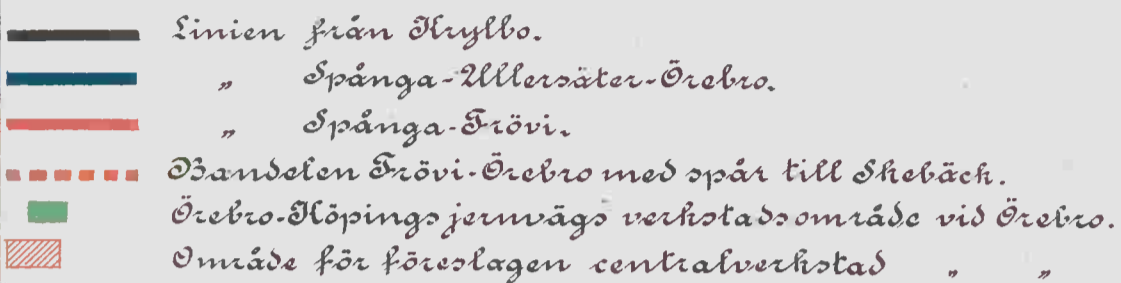 Linien från Krylbo.
„ Spånga-Ullersäter-Örebro.
„ Spånga-Frövi.
Bandelen Frövi-Örebro med spår till Skebäck.
Örebro-Köpings jernvägs verkstadsområde vid Örebro.
Område för föreslagen centralverkstad „ „